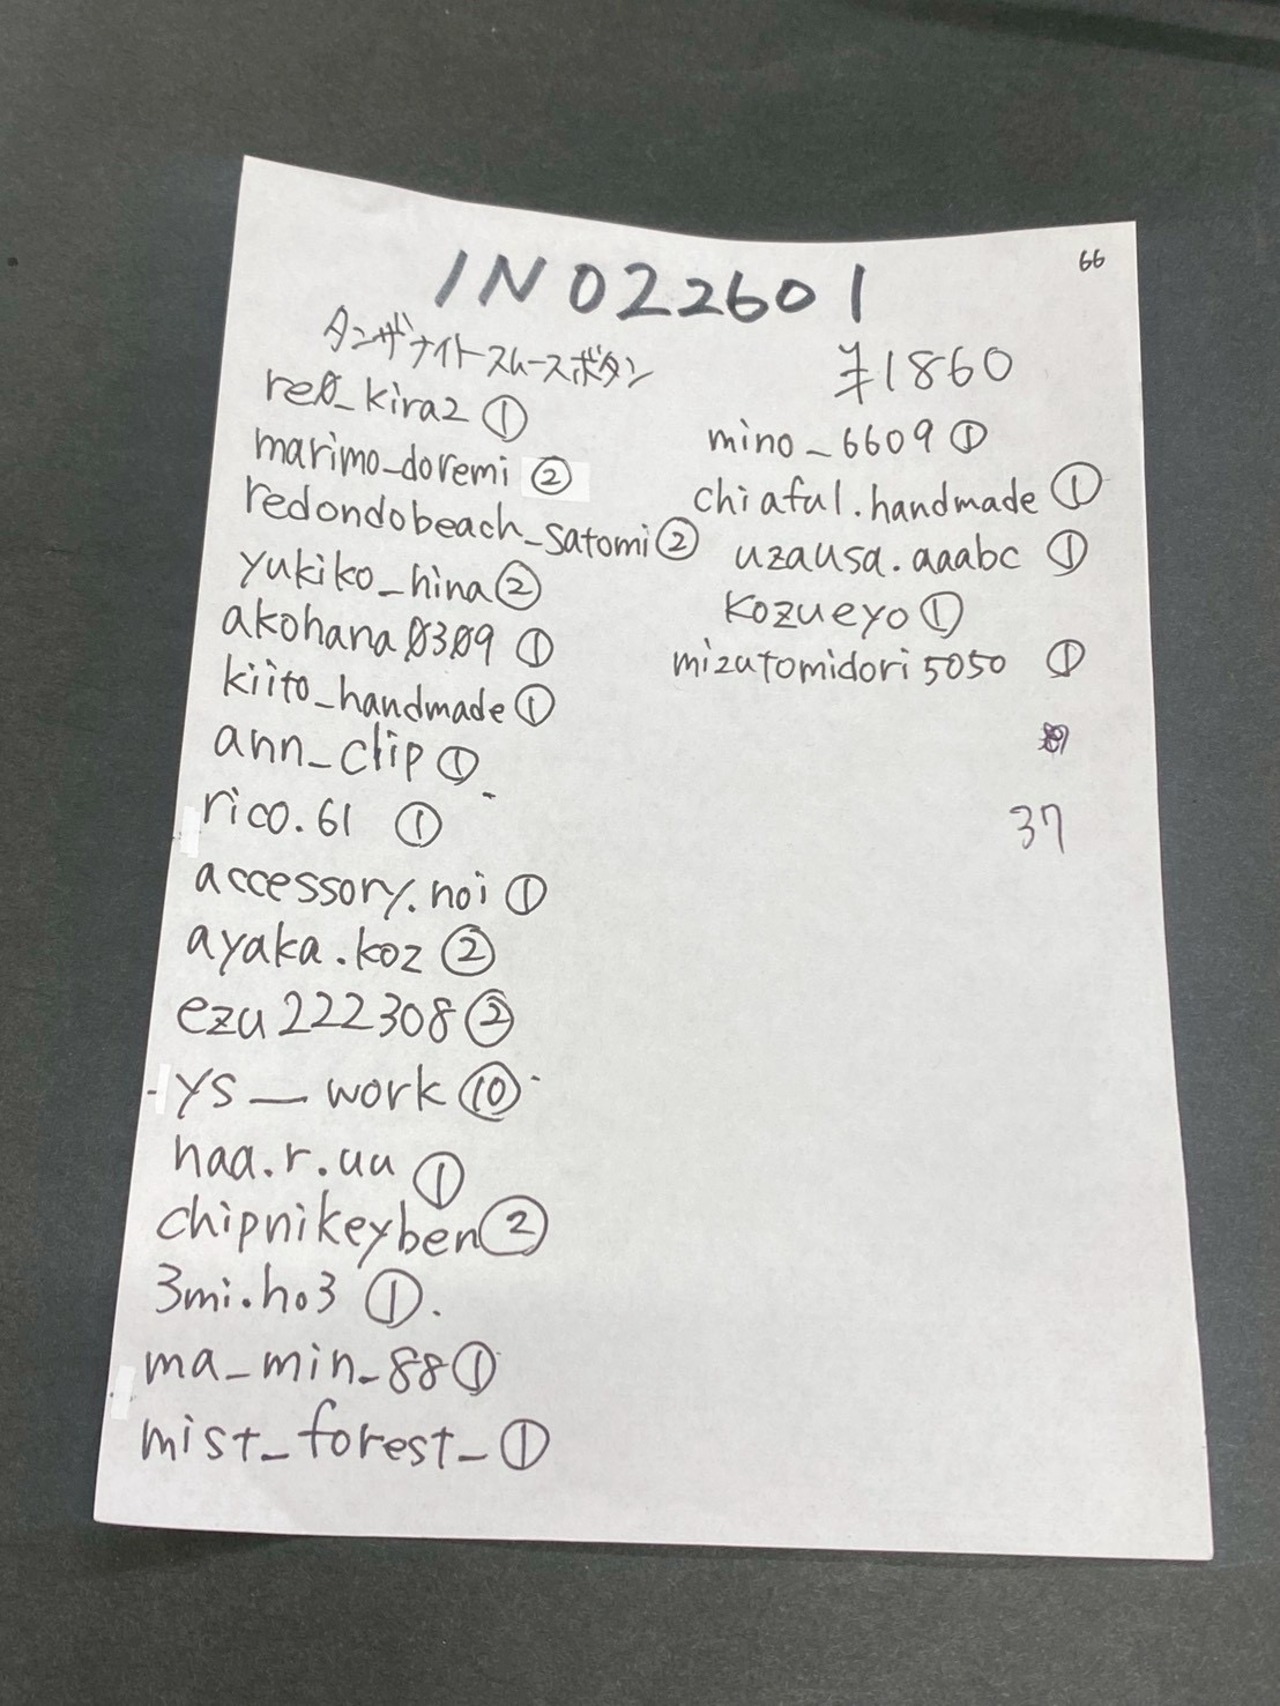 66
IN022601
タンザナイトスムースボタン
¥1860
re0_kira2 ①
marimo_doremi ②
redondobeach_satomi ②
yukiko_hina ②
akohana0309 ①
kiito_handmade ①
ann_clip ①
rico.61 ①
accessory.noi ①
ayaka.koz ②
ezu222308 ②
ys__work ⑩
haa.r.uu ①
chipnikeyben ②
3mi.ho3 ①
ma_min_88 ①
mist_forest_ ①
mino_6609 ①
chiaful.handmade ①
uzausa.aaabc ①
kozueyo ①
mizutomidori5050 ①
37